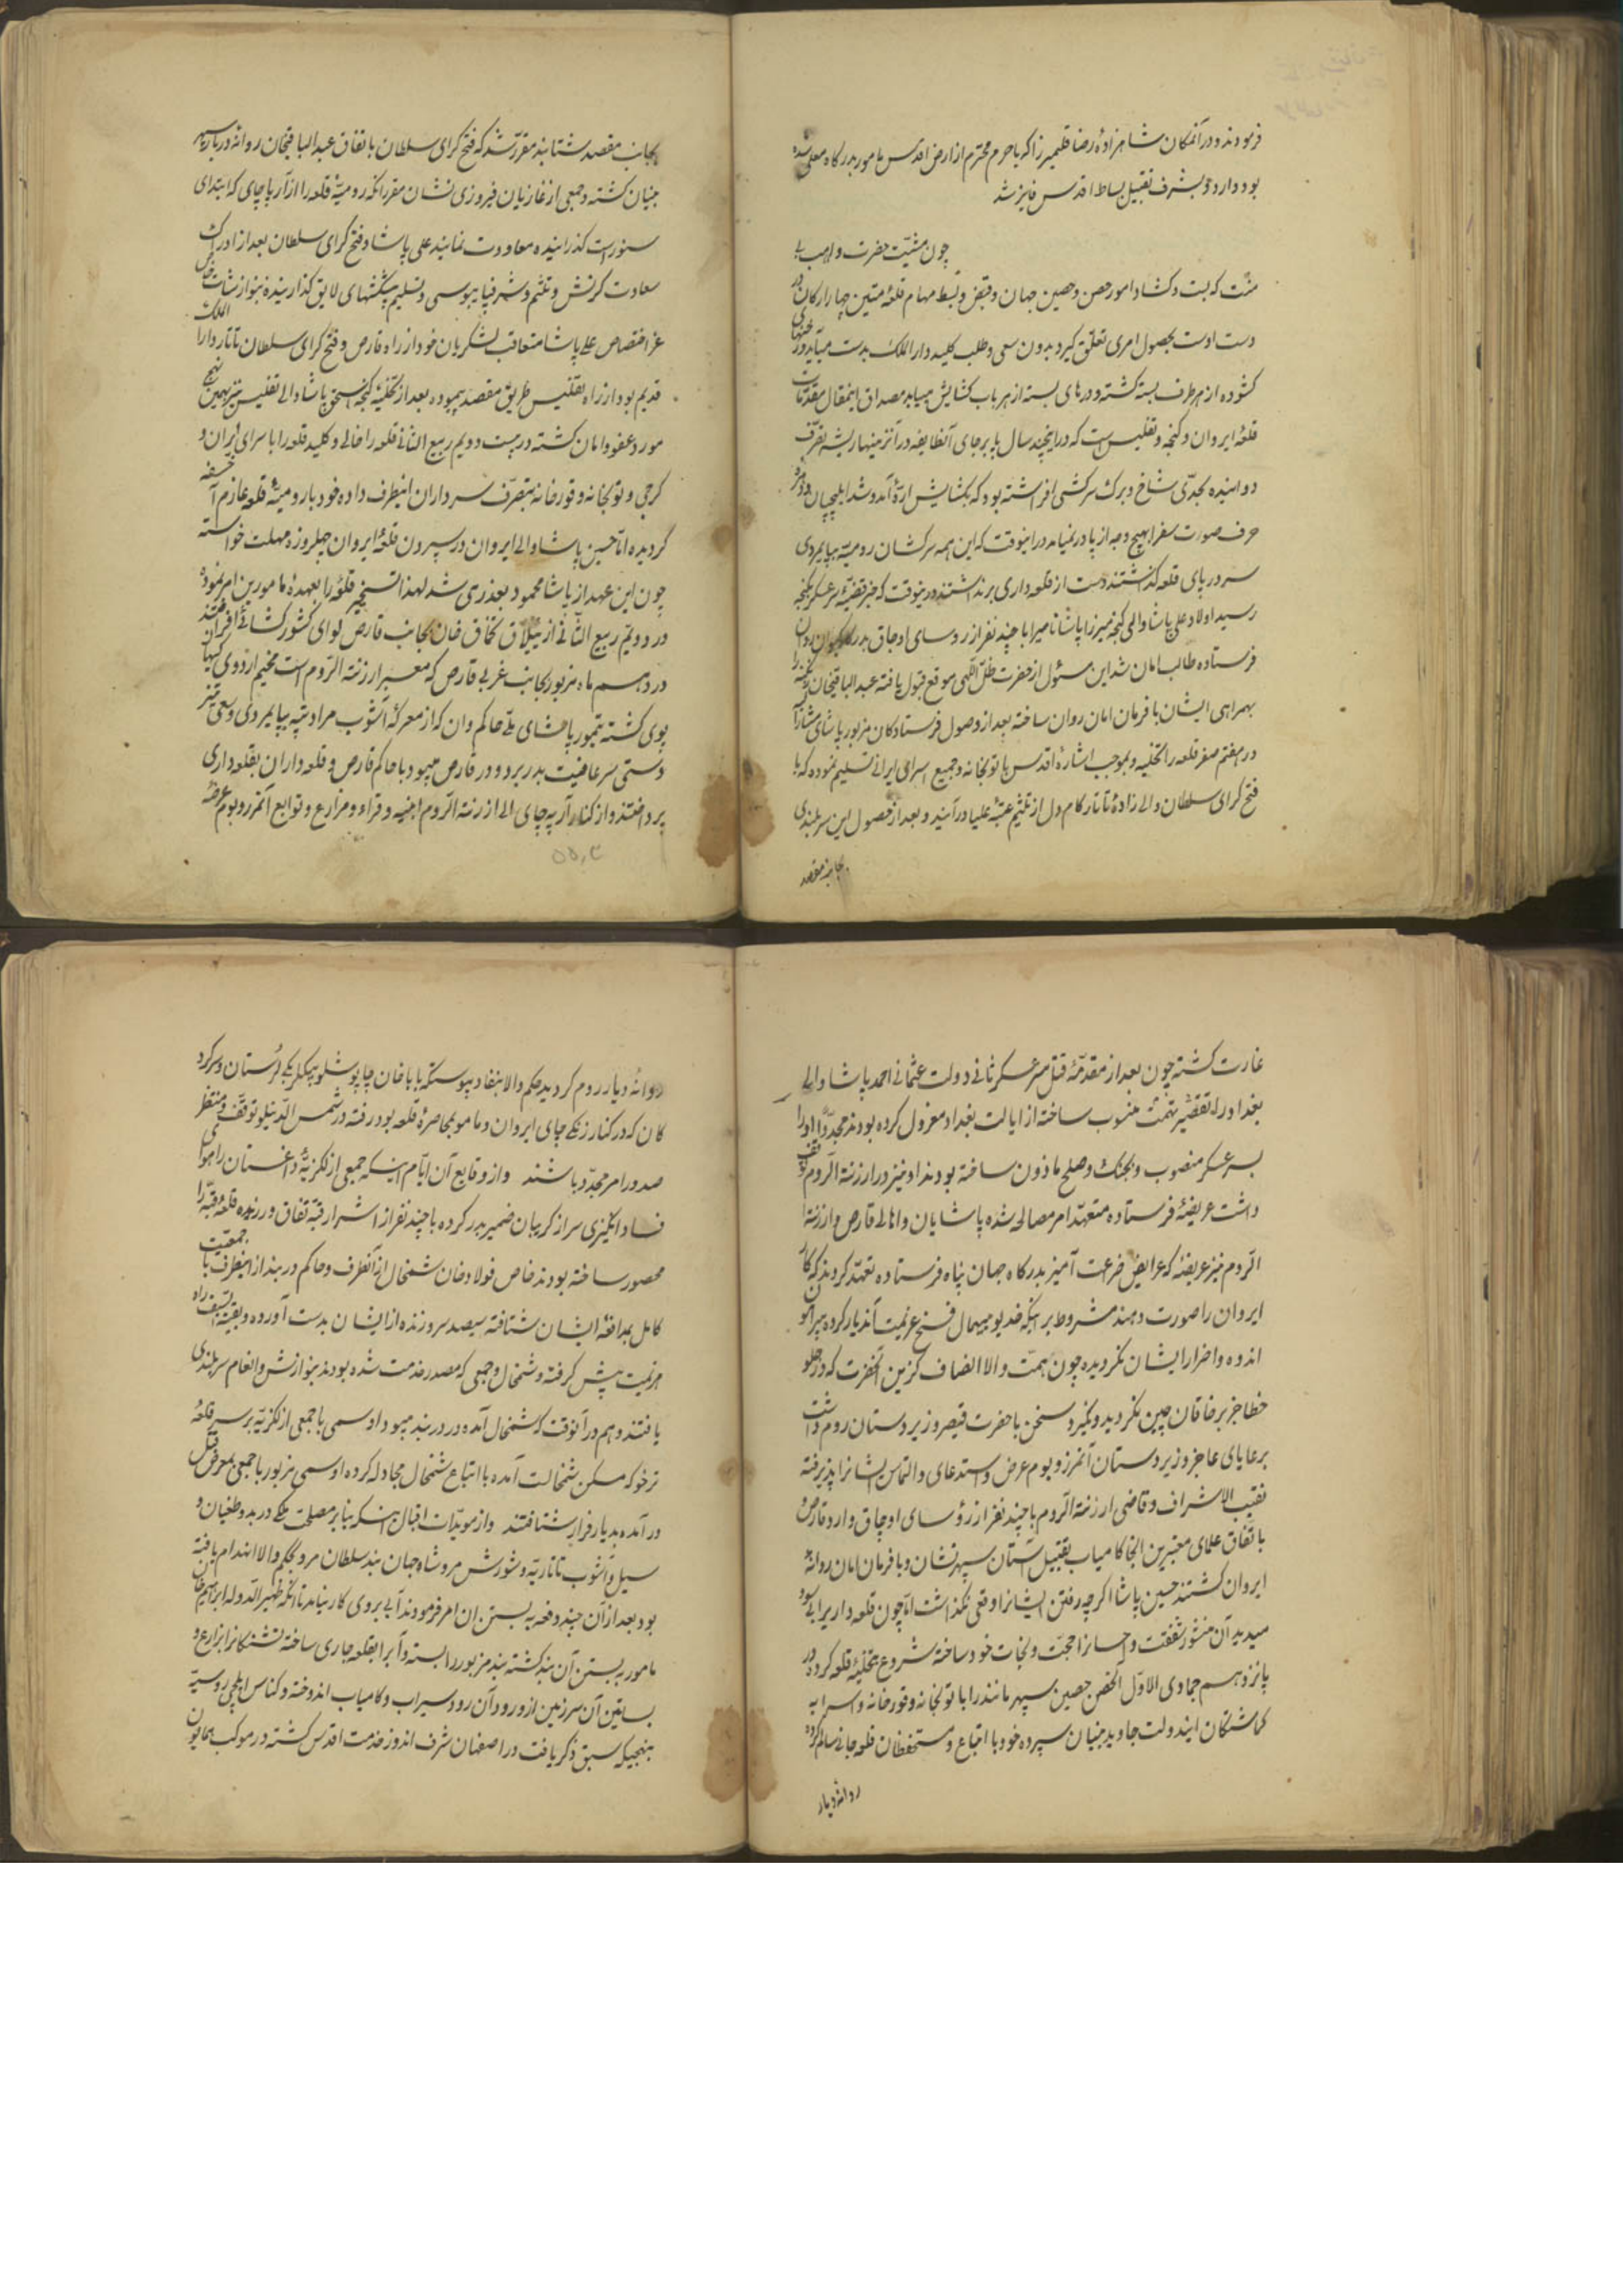 فرمودند و در آنمکان شاهزاده رضا قلیمیرزا که با حرم محترم از ارض اقدس مامور بدرکاه معلی شده
بود وارد و بشرف تقبیل بساط اقدس فایز شد
چون مشیّت حضرت واهب بی
منّت که بست و کشاد امور حصن و حصین جهان و قبض و بسط مهام قلعهٔ متین چهار ارکان در
دست اوست بحصول امری تعلق کیرد بدون سعی و طلب کلید دار الملک بدست میآید و درهای
کشوده از هر طرف بسته کشته و درهای بسته از هر باب کشایش مییابد مصداق اینمقال مقدمات
قلعهٔ ایروان و کنجه و تفلیس است که در اینچند سال پا بر جای آنطایفه در آنسرزمینها ریشه تصرف
دوانیده بحدّی شاخ و برک سرکشی افراشته بود که بکشایش ارّهٔ آمد و شد ایلچیان و دمرهٔ
حرف صورت سفرا بهیچ وجه از پا در نمیامد در اینوقت که این همه سرکشان رومیه بپایمردی
سر در پای قلعه کذاشتند دست از قلعه داری برنداشتند در ینوقت که خبر قضیّهٔ سرعسکر بکنجه
رسید اولاد علی پاشا والی کنجه میرزا پاشا نام را با چند نفر از روسای اوجاق بدرکاه کیوان رواق
فرستاده طالب امان شد این مسئول از حضرت ظلّ اللهی موقع قبول یافته عبدالباقیخان زنکنه را
بهمراهی ایشان با فرمان امان روان ساخته بعد از وصول فرستادکان مزبور پاشای مشار الیه
در هفتم صفر قلعه را تخلیه و بموجب اشارهٔ اقدس با توپخانه و جمیع اسرای ایرانی تسلیم نموده که با
فتح کرای سلطان والی زادهٔ تاتار کام دل از تلثیم عتبهٔ علیا درآیند و بعد از حصول این سربلندی
بجانب مقصد
بجانب مقصد شتابند مقرر شد که فتح کرای سلطان باتفاق عبدالباقیخان روانهٔ دربار سپهر
بنیان کشته و جمعی از غازیان فیروزی نشان مقرر انکه رومیهٔ قلعه را از آرپا چای که ابتدای
سنور است کذرانیده معاودت نمایند علی پاشا و فتح کرای سلطان بعد از ادراک
سعادت کرنش و تلثم و شرفیابی پابوسی و تسلیم پیشکشهای لایق کذارنیده بنوازشات خاص
عزّ اختصاص علی پاشا متعاقب لشکریان خود از راه قارص و فتح کرای سلطان تاتار دارا الملک
قدیم بود از راه تفلیس طریق مقصد پیموده بعد از تخلیهٔ کنجه اسحق پاشا والی تفلیس نیز بهمین نهج
مورد عفو و امان کشته در بیست و دویم ربیع الثانی قلعه را خالی و کلید قلعه را با سرای ایران و
کرجی و توپخانه و قورخانه بتصرّف سرداران اینطرف داده خود با رومیهٔ قلعه عازم آخسقه
کردیده امّا حسین پاشا والی ایروان در سپردن قلعهٔ ایروان چهلروزه مهلت خواسته
چون این عهد از پاشا محمود بعذر تی شد لهذا تسخیر قلعه را بعهدهٔ مامورین امر نموده
در دویم ربیع الثانی از ییلاق نخاق خان بجانب قارص لوای کشور کشائی افراختند
در دهم ماه مزبور بجانب غربی قارص که معبر ارزنة الرّوم است مخیم اردوی کیهان
پوی کشته تیمور پاشای ملی حاکم وان که از معرکهٔ آشوب مراد تپه بپایمردی و سعی تیز
دستی سر عافیت بدر برد و در قارص میبود با حاکم قارص و قلعه داران بقلعه داری
پرداختند و از کنار آرپه چای الی ارزنة الرّوم ابنیه و قراء و مزارع و توابع آنمرز و بوم عرضهٔ
غارت کشته چون بعد از مقدّمهٔ قتل سرعسکر ثانی دولت عثمانی احمد پاشا والی
بغداد را بتقصیر تهمت منسوب ساخته از ایالت بغداد معزول کرده بودند مجدّداً او را
بسرعسکر منصوب و بجنک و صلح ماذون ساخته بودند او نیز در ارزنة الرّوم توقف
داشت عریضهٔ فرستاده متعهّد امر مصالحه شده پاشایان و اهالی قارص و ارزنة
الرّوم نیز عریضهٔ که عرایض ضراعت آمیز بدرکاه جهان پناه فرستاده تعهّد کردند که کار
ایروان را صورت دهند مشروط بر انکه خدیو بیهمال فسخ عزیمت آندیار کرده پیرامون
اندوه و اضرار ایشان نکردیده چون همّت والا انصاف کزین آنحضرت که در جلو
خطا جز بر خاقان چین نکردید و نکیرد سخن با حضرت قیصر و زیردستان روم داشت
بر عایای عاجز و زیردستان آنمرز و بوم عرض و استدعای و التماس ایشانرا پذیرفته
نقیب الاشراف و قاضی ارزنة الرّوم با چند نفر از رؤسای اوجاق وارد قارص و
باتفاق علمای معتبرین آنجا کامیاب تقبیل آستان سپهر نشان و با فرمان امان روانهٔ
ایروان کشتند حسین پاشا اکرچه رفتن ایشانرا وقعی نکذاشت امّا چون قلعه داریرا بی سود
میدید آن منشور شفقت و احسانرا حجّت و نجات خود ساخته شروع بتخلیهٔ قلعه کرده در
پانزدهم جمادی الاوّل آنحصن حصین سپهر مانند را با توپخانه و قورخانه و اسرا به
کماشتکان ایندولت جاوید بنیان سپرده خود با اتباع و مستحفظان قلعه جانی سالم کرده
روانهٔ دیار
روانهٔ دیار روم کردید حکم والا بنفاد پیوست که بابا خان چاپوشلو بیکلربیکی لرستان و سرکرد
کان که در کنار زنکی چای ایروان و مامور بمحاصرهٔ قلعه بود رفته در شمس الدینلو توقّف و منتظر
صدور امر مجدّد باشند و از وقایع آن ایّام اینکه جمعی از لکزیهٔ داغستان را هوای
فساد انکیزی سر از کریبان ضمیر بدر کرده با چند نفر از اشرار قبّه نفاق ورزیده قلعهٔ قبّه را
محصور ساخته بودند خاص فولاد خان شمخال از آنطرف و حاکم دربند از اینطرف با جمعیت
کامل بمدافعهٔ ایشان شتافته سیصد سر و زنده از ایشان بدست آورده و بقیة السیف راه
هزیمت پیش کرفته و شمخال و جمعی که مصدر خدمت شده بودند بنوازش و انعام سربلندی
یافتند و هم در آنوقت که شمخال آمده در دربند میبود اوسمی با جمعی از لکزیه بر سر قلعهٔ
ترخو که مسکن شمخالست آمده با اتباع شمخال مجادله کرده اوسمی مزبور با جمعی بمعرض قتل
در آمده بدیار فرار شتافتند و از مویّدات اقبال اینکه بنابر مصلحت ملکی در بدو طغیان و
سیل و آشوب تاتاریّه و شورش مرو شاه جهان بند سلطان مرو بحکم والا انهدام یافته
بود بعد از آن چند دفعه به بستن ان امر فرمودند آبی بروی کار نیامد تا انکه ظهیر الدوله ابراهیم خان
مامور به بستن آن بند کشته بند مزبور را بسته و آبرا بقلعه جاری ساخته تشنکانرا بزارع و
بساتین آن سرزمین از ورود آن رود سیراب و کامیاب اندوخته و کناس ایلچی روسیّه
بنهجیکه سبق ذکر یافت در اصفهان شرف اندوز خدمت اقدس کشته در موکب همایون